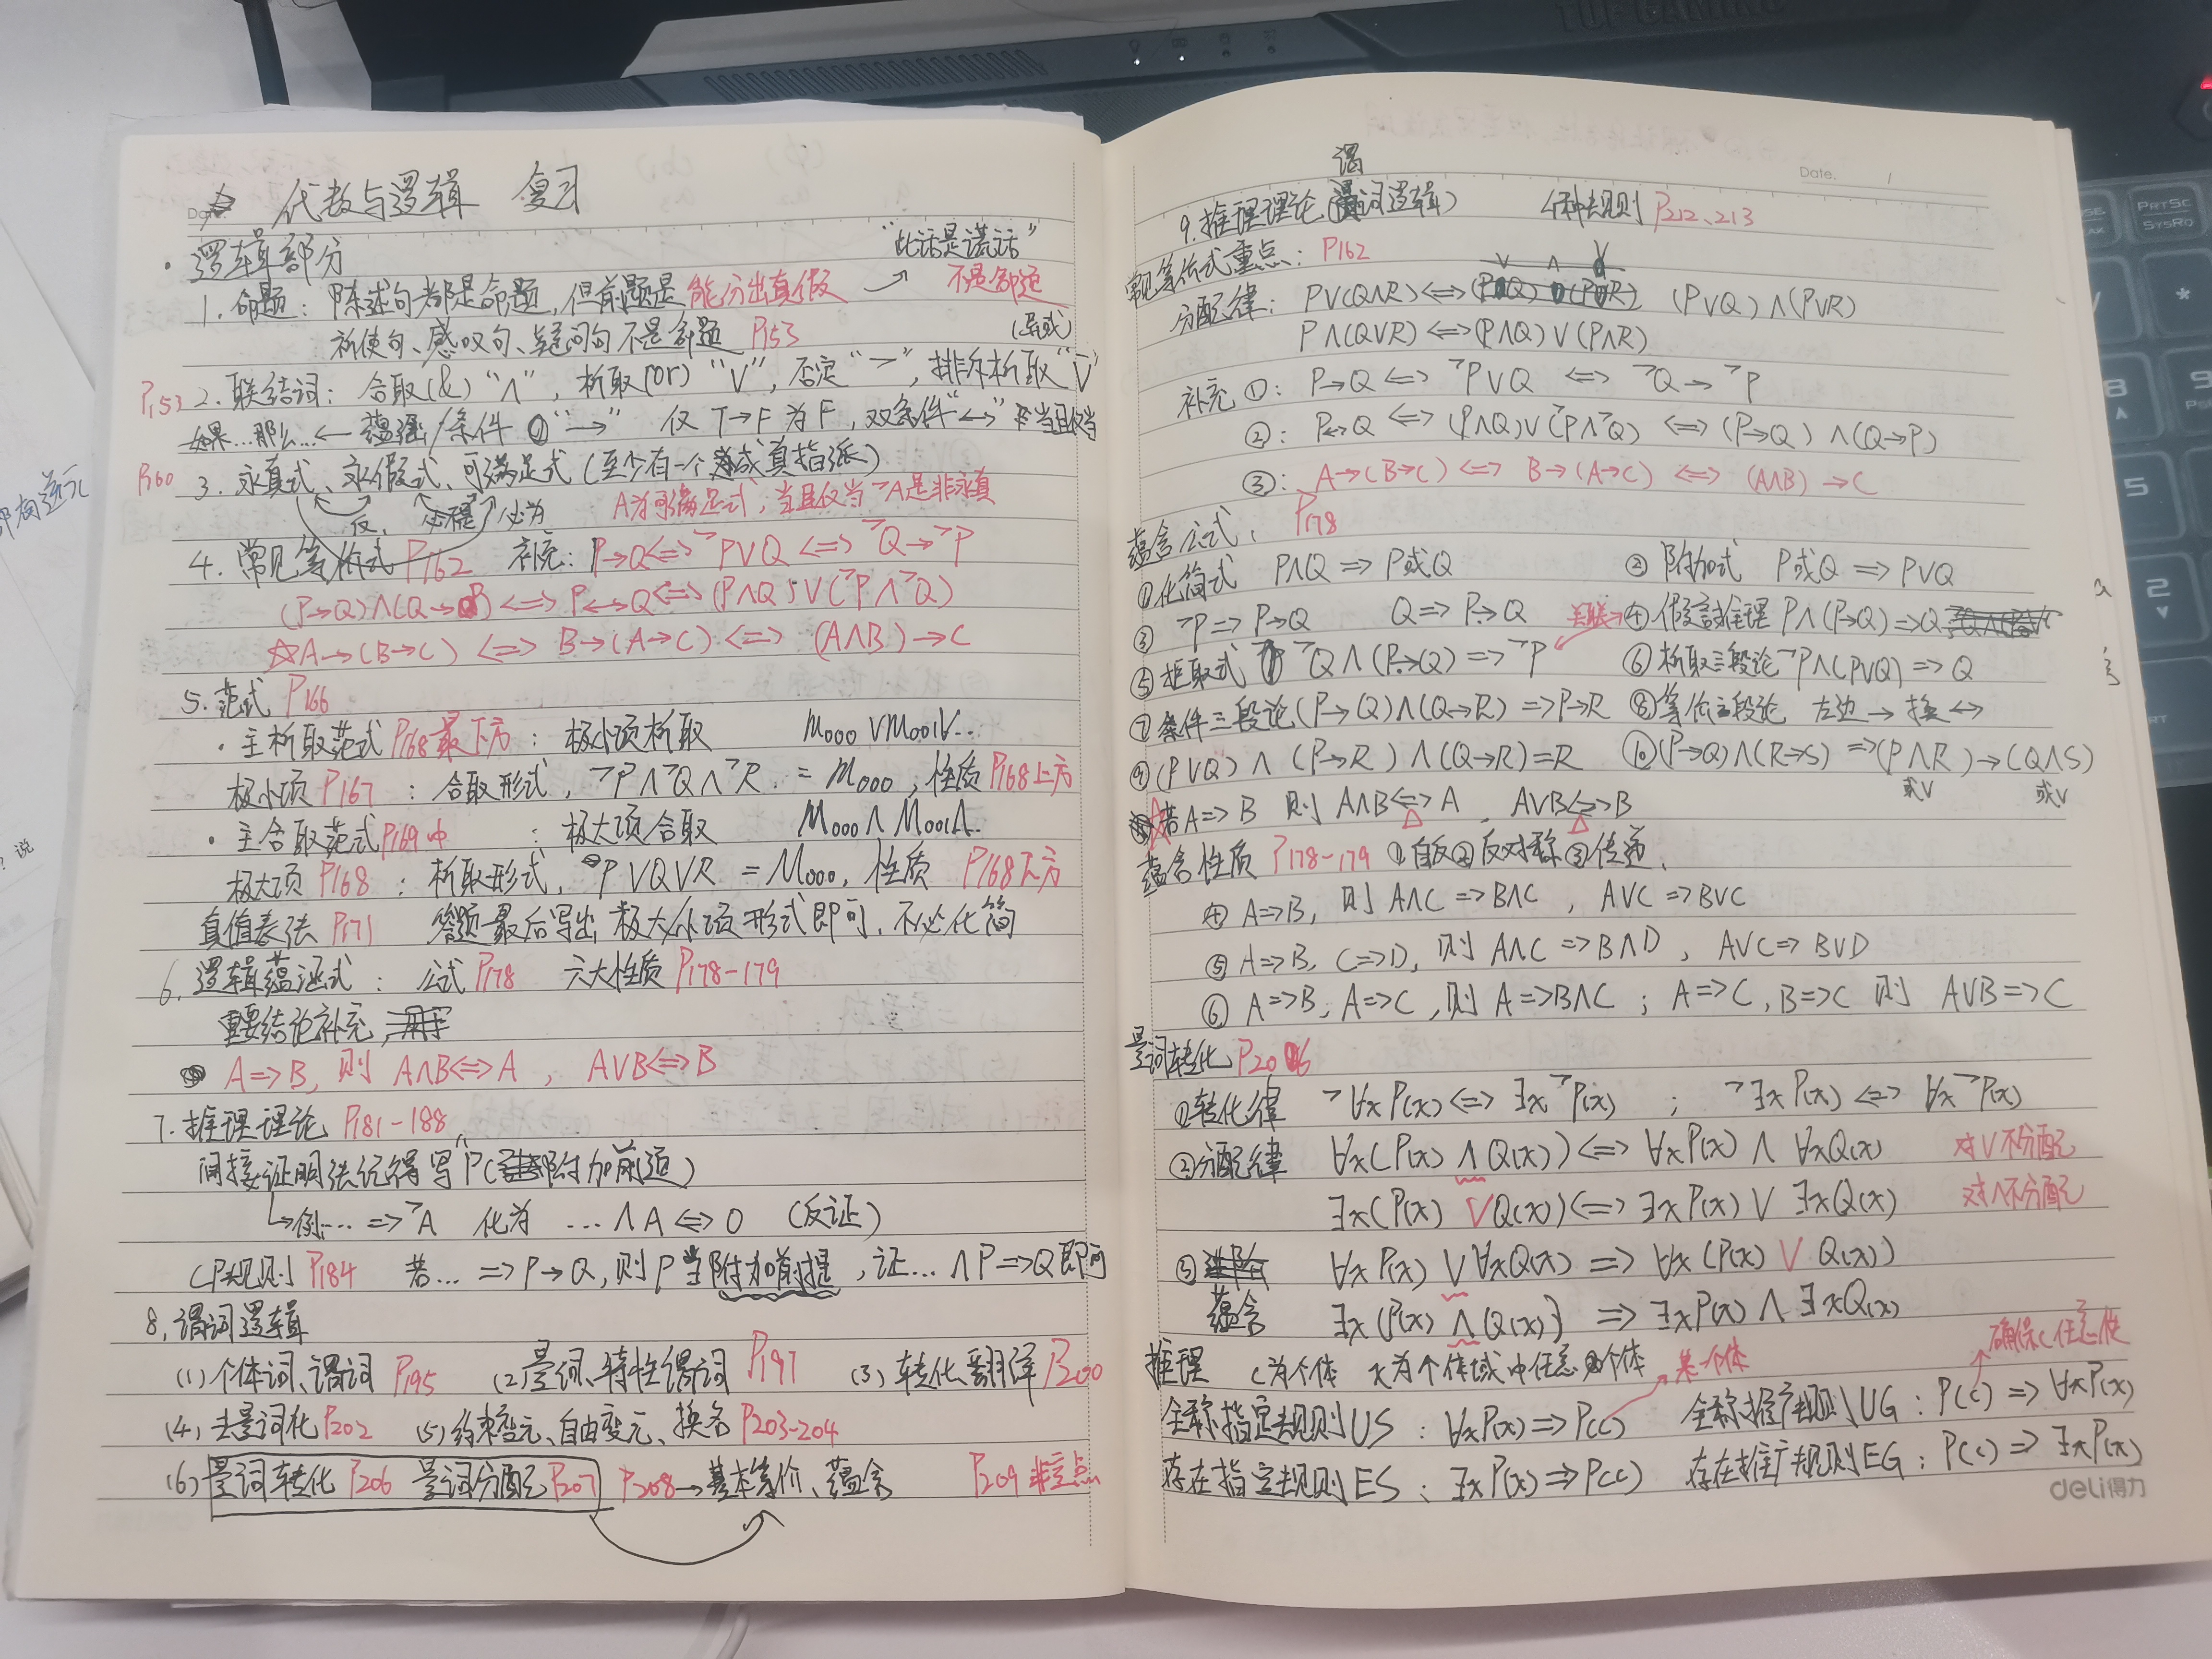 代数与逻辑 复习
·逻辑部分
"此话是谎话"
1. 命题：陈述句都是命题，但前题是能分出真假 不是命题
祈使句、感叹句、疑问句不是命题 P153 (异或)
P153 2. 联结词：合取(&) "∧"，析取(or) "∨"，否定 "¬"，排斥析取 "⊽"
如果...那么...← 蕴涵/条件 "→" 仅 T→F 为 F，双条件 "↔" 当且仅当
P160 3. 永真式、永假式、可满足式 (至少有一个成真指派)
仅 必为 A为可满足式，当且仅当 ¬A是非永真
4. 常见等价式 P162 补充：P→Q⇔¬P∨Q ⇔ ¬Q→¬P
(P→Q)∧(Q→P) ⇔ P↔Q⇔(P∧Q)∨(¬P∧¬Q)
☆A→(B→C) ⇔ B→(A→C) ⇔ (A∧B)→C
5. 范式 P166
·主析取范式 P168最下方：极小项析取 m000∨m001∨...
极小项 P167：合取形式，¬P∧¬Q∧¬R = m000，性质 P168上方
·主合取范式 P169中：极大项合取 M000∧M001∧...
极大项 P168：析取形式，P∨Q∨R = M000，性质 P168下方
真值表法 P171 答题最后写出极大/小项形式即可，不必化简
6. 逻辑蕴涵式：公式 P178 六大性质 P178-179
重要结论补充
A⇒B，则 A∧B⇔A，A∨B⇔B
7. 推理理论 P181-188
间接证明法记得写"P(附加前题)
→例... ⇒¬A 化为 ...∧A⇔0 (反证)
CP规则 P184 若... ⇒P→Q，则P当附加前提，证...∧P⇒Q即可
8. 谓词逻辑
(1) 个体词、谓词 P195 (2) 量词、特性谓词 P197 (3) 转化、翻译 P200
(4) 去量词化 P202 (5) 约束变元、自由变元、换名 P203-204
(6) 量词转化 P206 量词分配 P207 P208→基本等价、蕴含 P209非重点
Date.
谓
9. 推理理论 (词逻辑) 4种规则 P212、213
常见等价式重点：P162
分配律：P∨(Q∧R)⇔ (P∨Q)∧(P∨R)
P∧(Q∨R)⇔(P∧Q)∨(P∧R)
补充 ①：P→Q ⇔ ¬P∨Q ⇔ ¬Q→¬P
②：P↔Q ⇔ (P∧Q)∨(¬P∧¬Q) ⇔ (P→Q)∧(Q→P)
③：A→(B→C) ⇔ B→(A→C) ⇔ (A∧B)→C
蕴含公式：P178
①化简式 P∧Q ⇒ P或Q ②附加式 P或Q ⇒ P∨Q
③ ¬P⇒P→Q Q⇒P→Q 关联→ ④假言推理 P∧(P→Q)⇒Q
⑤拒取式 ¬Q∧(P→Q)⇒¬P ⑥析取三段论 ¬P∧(P∨Q)⇒Q
⑦条件三段论 (P→Q)∧(Q→R)⇒P→R ⑧等价三段论 左边→换↔
⑨(P∨Q)∧(P→R)∧(Q→R)=R ⑩(P→Q)∧(R→S)⇒(P∧R)→(Q∧S)
或∨ 或∨
☆若A⇒B 则 A∧B⇔A，A∨B⇔B
蕴含性质 P178-179 ①自反②反对称③传递.
④ A⇒B，则 A∧C⇒B∧C，A∨C⇒B∨C
⑤ A⇒B，C⇒D，则 A∧C⇒B∧D，A∨C⇒B∨D
⑥ A⇒B，A⇒C，则 A⇒B∧C；A⇒C，B⇒C 则 A∨B⇒C
量词转化 P206
①转化律 ¬∀xP(x)⇔∃x¬P(x)；¬∃xP(x)⇔∀x¬P(x)
②分配律 ∀x(P(x)∧Q(x))⇔∀xP(x)∧∀xQ(x) 对∨不分配
∃x(P(x)∨Q(x))⇔∃xP(x)∨∃xQ(x) 对∧不分配
③ ∀xP(x)∨∀xQ(x)⇒∀x(P(x)∨Q(x))
蕴含 ∃x(P(x)∧Q(x))⇒∃xP(x)∧∃xQ(x)
确保C任意性
推理 C为个体 x为个体域中任意个体 某一个体
全称指定规则US：∀xP(x)⇒P(C) 全称推广规则UG：P(C)⇒∀xP(x)
存在指定规则ES：∃xP(x)⇒P(C) 存在推广规则EG：P(C)⇒∃xP(x)
deli得力